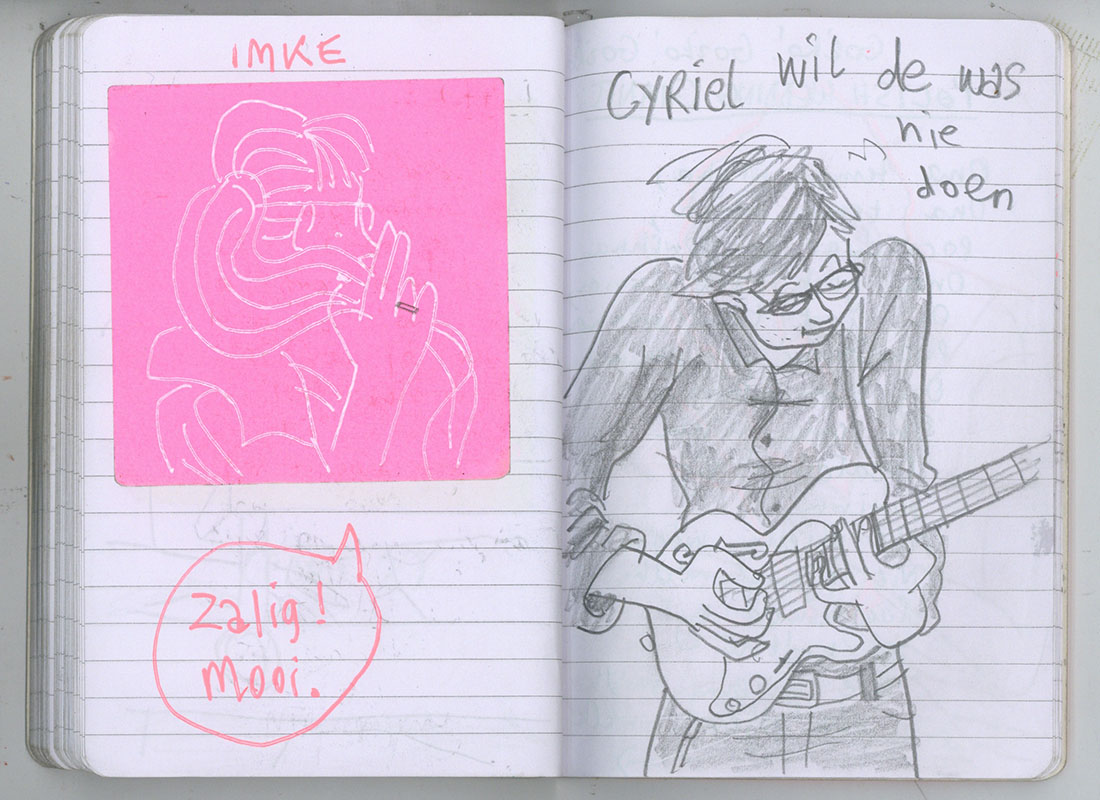 IMKE
zalig!
mooi.
CyRiel wil de was
nie
doen